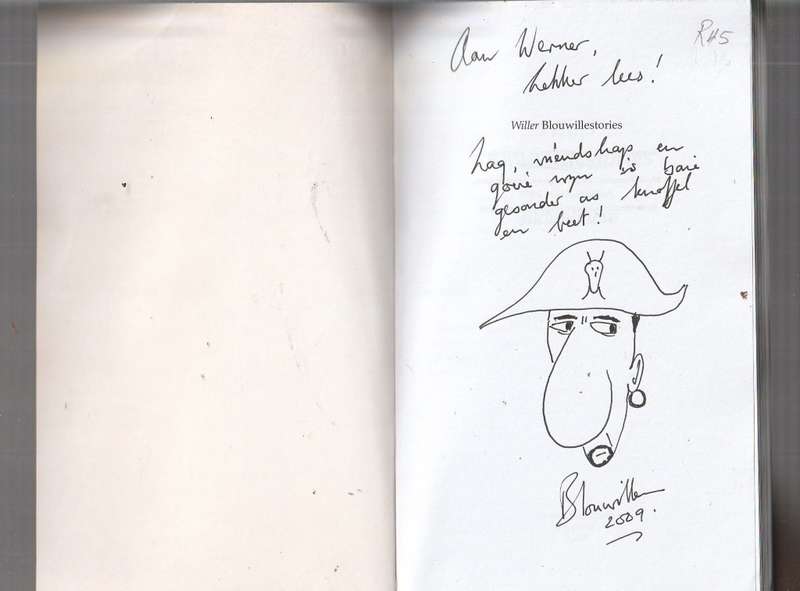 R45
Aan Werner,
lekker lees!
Willer Blouwillestories
Lag, vriendskap en
goeie wyn is baie
gesonder as knoffel
en beet!
Blouwillem
2009.